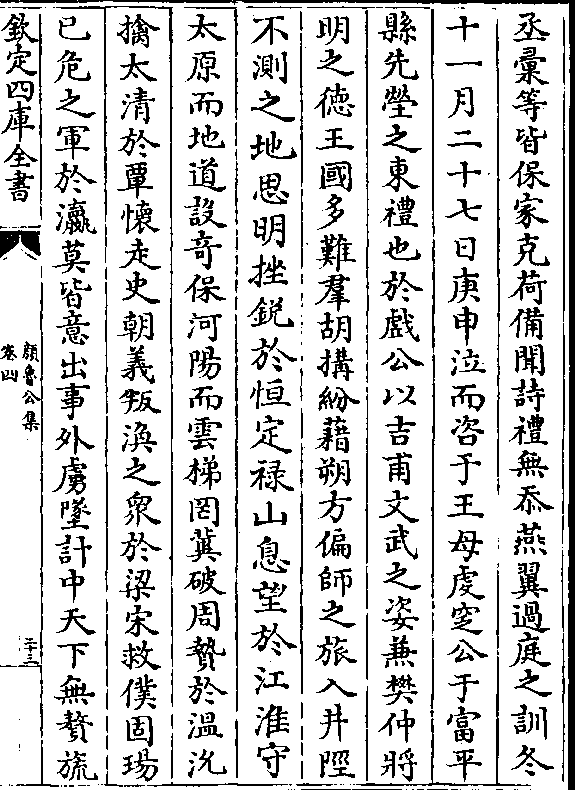 丞彚等皆保家克荷備聞詩禮無忝燕翼過庭之訓冬
十一月二十七日庚申泣而咨于王母虔窆公于富平
縣先塋之東禮也於戲公以吉甫文武之姿兼樊仲將
明之德王國多難羣胡搆紛藉朔方偏師之旅入井陘
不測之地思明挫銳於恒定禄山息望於江淮守
太原而地道設竒保河陽而雲梯罔冀破周贄於溫沇
擒太清於覃懷走史朝義叛渙之衆於梁宋救僕固瑒
已危之軍於瀛莫皆意出事外虜墜計中天下無贅旒
欽定四庫全書
顔魯公集
卷四
二十三